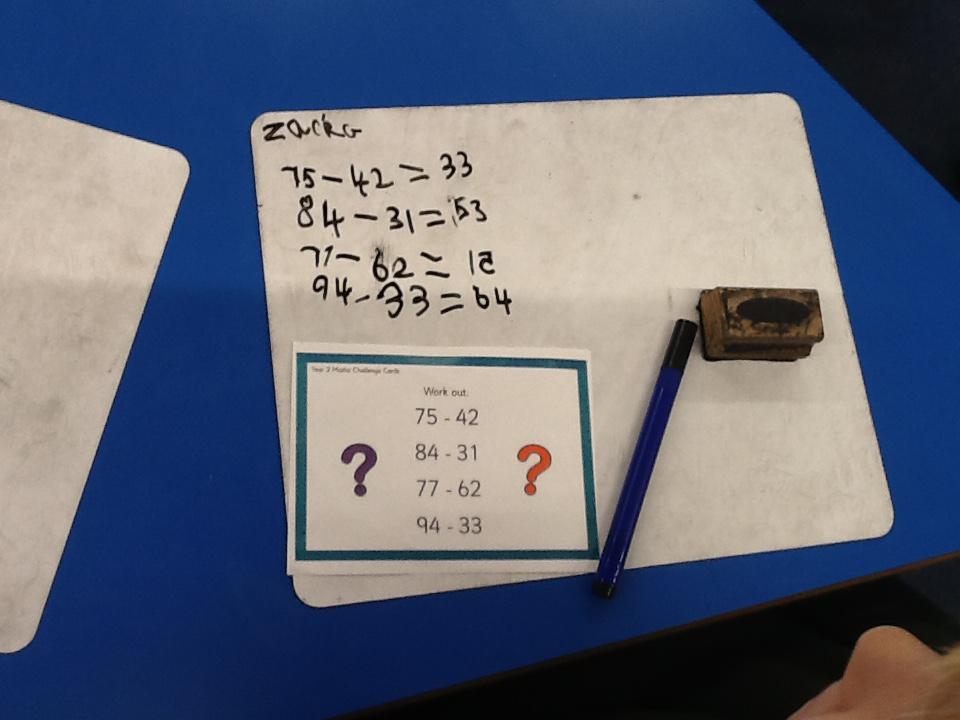 75-42=33
84-31=53
77-62=15
94-33=64
Year 2 Maths Challenge Cards
Work out.
75 - 42
84 - 31
77 - 62
94 - 33
? ?